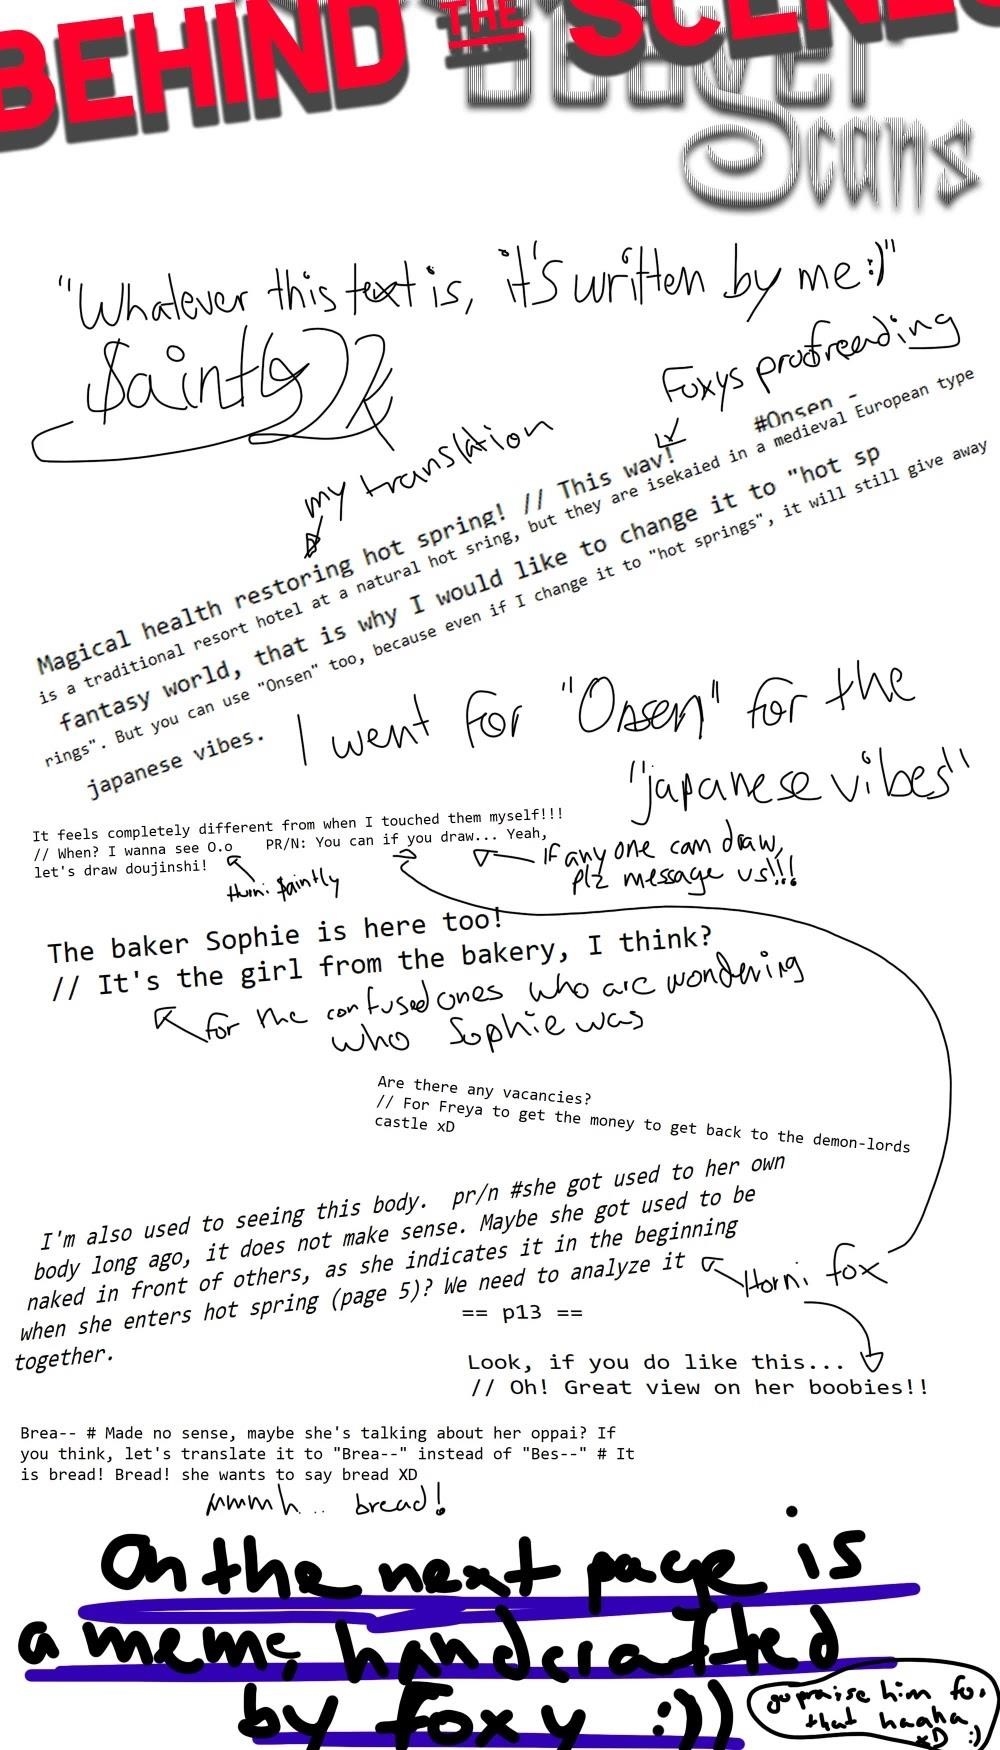 BEHIND THE SCENES
Scans
"Whatever this text is, it's written by me:)"
Saintly
Foxys proofreading
my translation
Magical health restoring hot spring! // This way! #Onsen -
is a traditional resort hotel at a natural hot sring, but they are isekaied in a medieval European type
fantasy world, that is why I would like to change it to "hot sp
rings". But you can use "Onsen" too, because even if I change it to "hot springs", it will still give away
japanese vibes.
I went for "Onsen" for the
"japanese vibes"
It feels completely different from when I touched them myself!!!
// When? I wanna see O.o    PR/N: You can if you draw... Yeah,
let's draw doujinshi!
If any one can draw,
plz message us!!!
Horni Saintly
The baker Sophie is here too!
// It's the girl from the bakery, I think?
for the confused ones who are wondering
who Sophie was
Are there any vacancies?
// For Freya to get the money to get back to the demon-lords
castle xD
I'm also used to seeing this body.  pr/n #she got used to her own
body long ago, it does not make sense. Maybe she got used to be
naked in front of others, as she indicates it in the beginning
when she enters hot spring (page 5)? We need to analyze it
together.
Horni fox
== p13 ==
Look, if you do like this...
// Oh! Great view on her boobies!!
Brea-- # Made no sense, maybe she's talking about her oppai? If
you think, let's translate it to "Brea--" instead of "Bes--" # It
is bread! Bread! she wants to say bread XD
Mmmh... bread!
On the next page is
a meme, handcrafted
by foxy :))
go praise him for
that haaha
xD :)